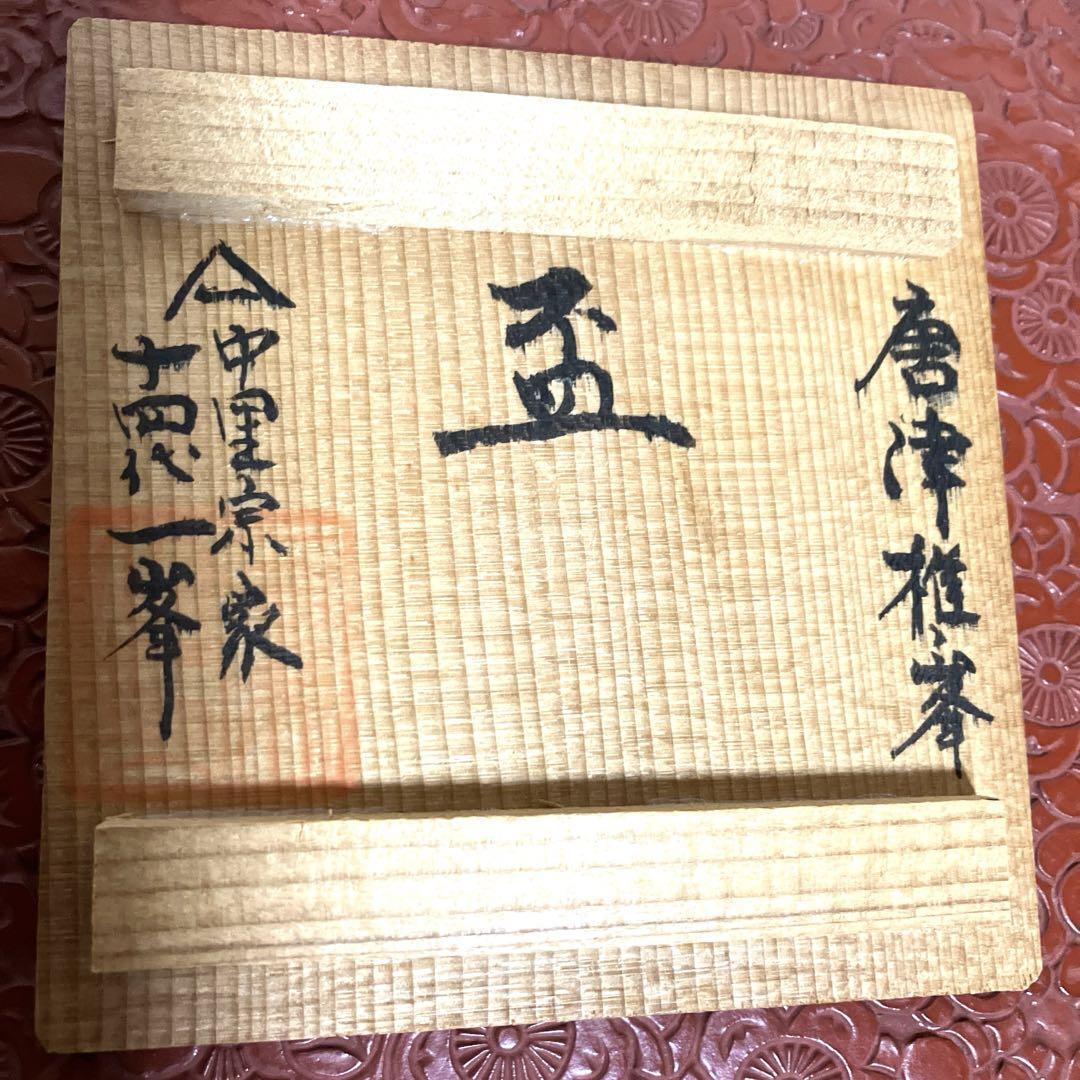 唐津椎峯
盃
中里宗家
十四代一峯